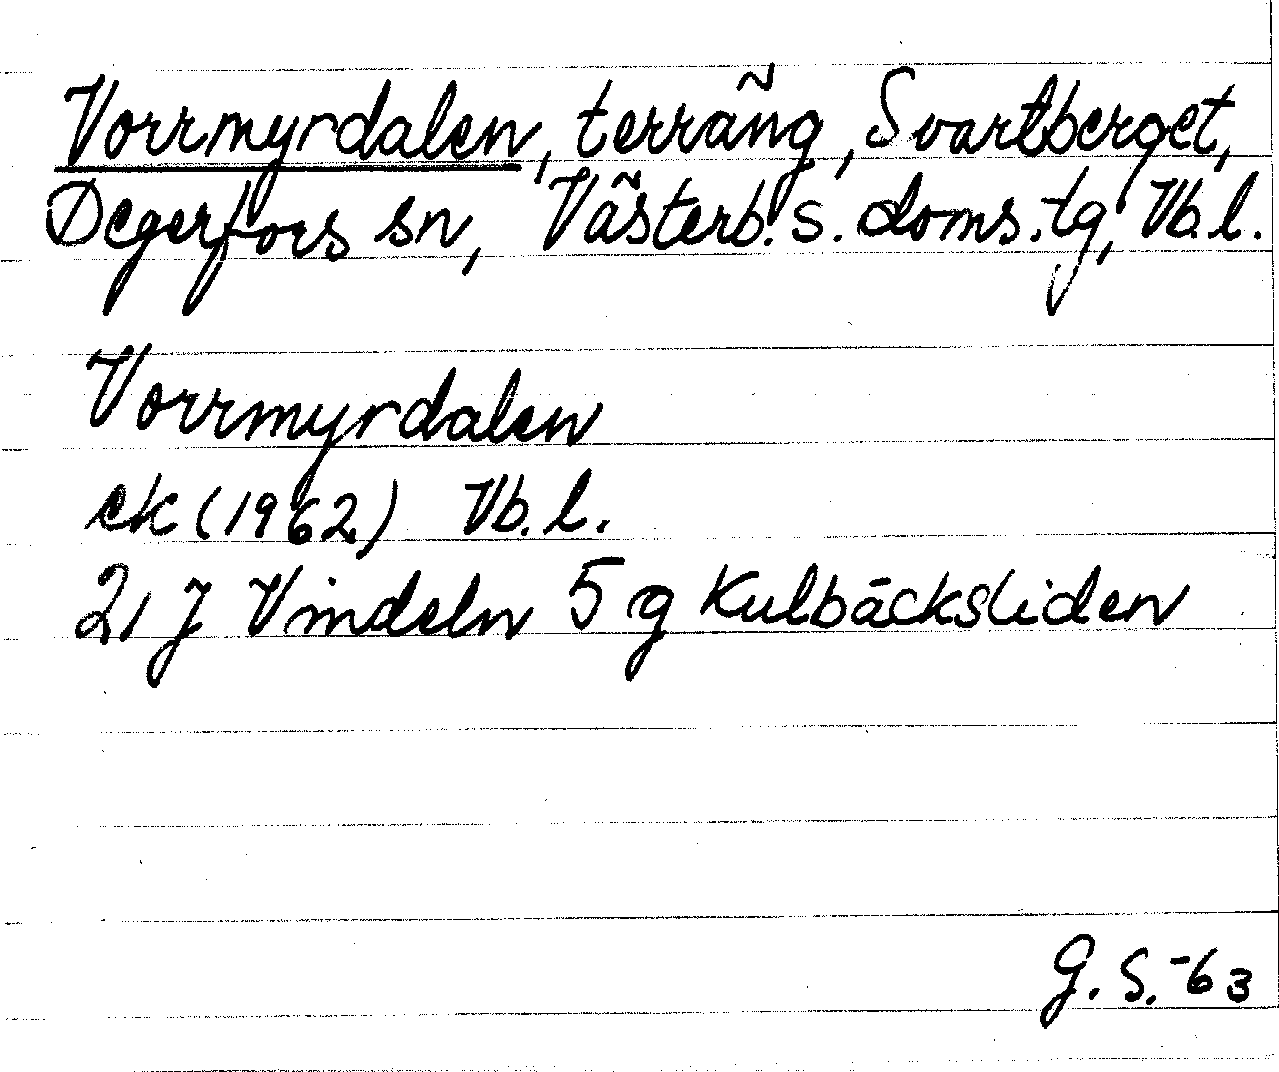 Vorrmyrdalen, terräng, Svartberget,
Degerfors sn, Västerb. s. doms. tg, Vb. l.
Vorrmyrdalen
ek (1962) Vb. l.
21 J Vindeln 5 g Kulbäcksliden
G. S. -63